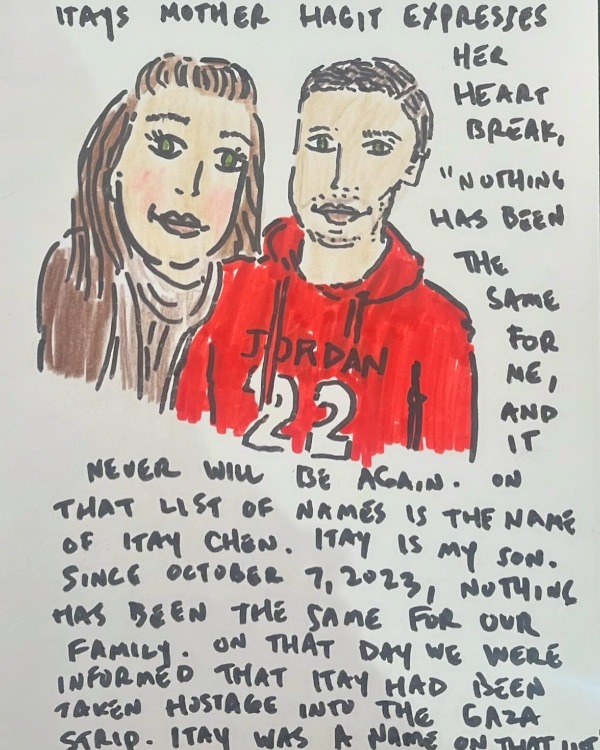 ITAYS MOTHER HAGIT EXPRESSES
HER
HEART
BREAK,
"NOTHING
HAS BEEN
THE
SAME
FOR
ME,
AND
IT
JORDAN
22
NEVER WILL BE AGAIN. ON
THAT LIST OF NAMES IS THE NAME
OF ITAY CHEN. ITAY IS MY SON.
SINCE OCTOBER 7, 2023, NOTHING
HAS BEEN THE SAME FOR OUR
FAMILY. ON THAT DAY WE WERE
INFORMED THAT ITAY HAD BEEN
TAKEN HOSTAGE INTO THE GAZA
STRIP. ITAY WAS A NAME ON THAT LIST